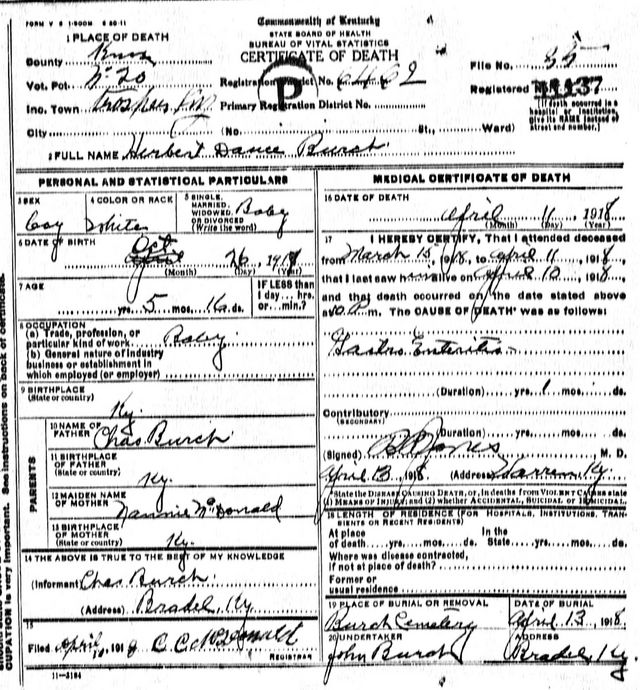 FORM V S 1-500M 8 20-11
Commonwealth of Kentucky
STATE BOARD OF HEALTH
BUREAU OF VITAL STATISTICS
CERTIFICATE OF DEATH
1 PLACE OF DEATH
County Knox
Vot. Pct. No 20
Inc. Town
City (No. St., Ward)
Registration District No.
Primary Registration District No.
P
File No.
Registered No. 137
(If death occurred in a hospital or institution, give its NAME instead of street and number.)
2 FULL NAME Herbert Dance Burch
PERSONAL AND STATISTICAL PARTICULARS
3 SEX boy
4 COLOR OR RACE White
5 SINGLE, MARRIED, WIDOWED, OR DIVORCED (Write the word) Baby
6 DATE OF BIRTH Oct 26, 191
(Month) (Day) (Year)
7 AGE
yrs. 5 mos. 16 ds.
IF LESS than 1 day... hrs. or... min.?
8 OCCUPATION
(a) Trade, profession, or particular kind of work Baby
(b) General nature of industry business or establishment in which employed (or employer)
9 BIRTHPLACE (State or country) Ky.
PARENTS
10 NAME OF FATHER Chas Burch
11 BIRTHPLACE OF FATHER (State or country) Ky.
12 MAIDEN NAME OF MOTHER Nannie McDonald
13 BIRTHPLACE OF MOTHER (State or country) Ky.
14 THE ABOVE IS TRUE TO THE BEST OF MY KNOWLEDGE
(Informant) Chas Burch
(Address) Bradel, Ky
15
Filed April, 191 C. C. McDonald
REGISTRAR
11-3184
MEDICAL CERTIFICATE OF DEATH
16 DATE OF DEATH
April 11, 1918
(Month) (Day) (Year)
17 I HEREBY CERTIFY, That I attended deceased
from March 15, 1918, to April 11, 1918
that I last saw him alive on April 10, 1918,
and that death occurred on the date stated above
at m. The CAUSE OF DEATH* was as follows:
Gastro Enteritis
(Duration) yrs. 1 mos. ds.
Contributory (SECONDARY)
(Duration) yrs. mos. ds.
(Signed) Jones M. D.
April 13, 1918 (Address) Warren, Ky.
*State the DISEASE CAUSING DEATH, or, in deaths from VIOLENT CAUSES state (1) MEANS OF INJURY; and (2) whether ACCIDENTAL, SUICIDAL or HOMICIDAL.
18 LENGTH OF RESIDENCE (FOR HOSPITALS, INSTITUTIONS, TRANSIENTS OR RECENT RESIDENTS)
At place of death yrs. mos. ds. In the State yrs. mos. ds.
Where was disease contracted, if not at place of death?
Former or usual residence
19 PLACE OF BURIAL OR REMOVAL Burch Cemetery
DATE OF BURIAL April 13, 1918
20 UNDERTAKER John Burch
ADDRESS Bradel, Ky.
CUPATION is very important. See instructions on back of certificate.